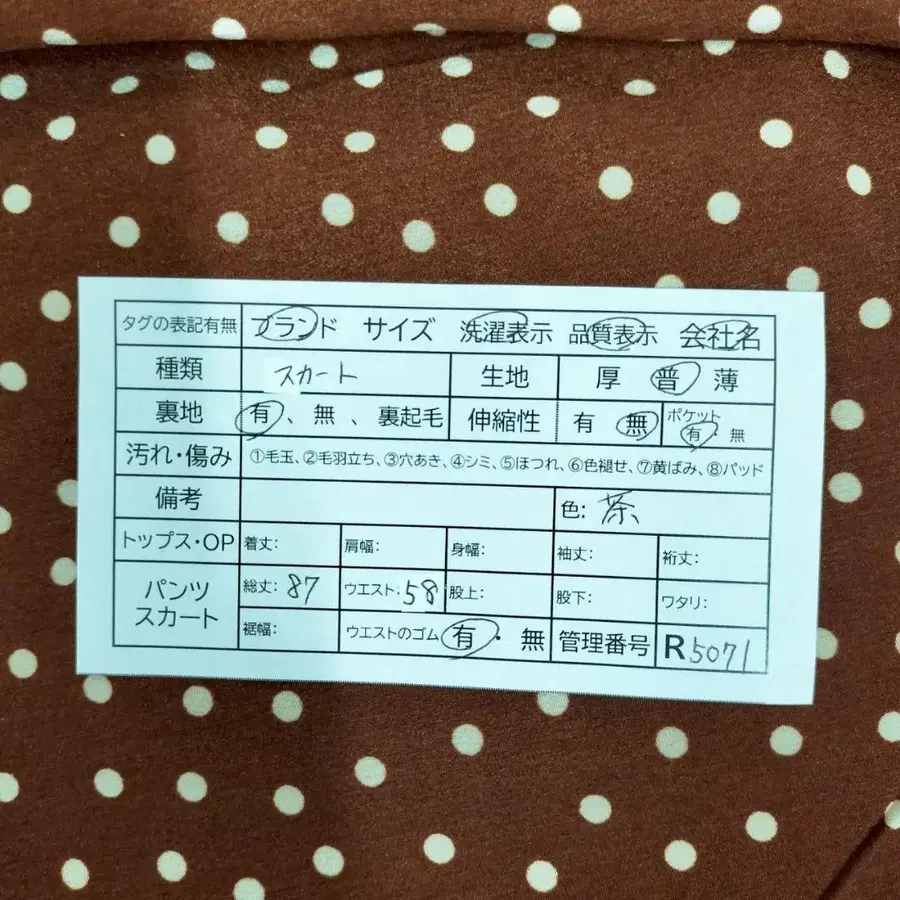 タグの表記有無 ブランド サイズ 洗濯表示 品質表示 会社名
種類 スカート 生地 厚 普 薄
裏地 有、無、裏起毛 伸縮性 有 無 ポケット 有・無
汚れ・傷み ①毛玉、②毛羽立ち、③穴あき、④シミ、⑤ほつれ、⑥色褪せ、⑦黄ばみ、⑧パッド
備考 色: 茶
トップス・OP 着丈: 肩幅: 身幅: 袖丈: 裄丈:
パンツ スカート 総丈: 87 ウエスト: 58 股上: 股下: ワタリ:
裾幅: ウエストのゴム 有・無 管理番号 R5071